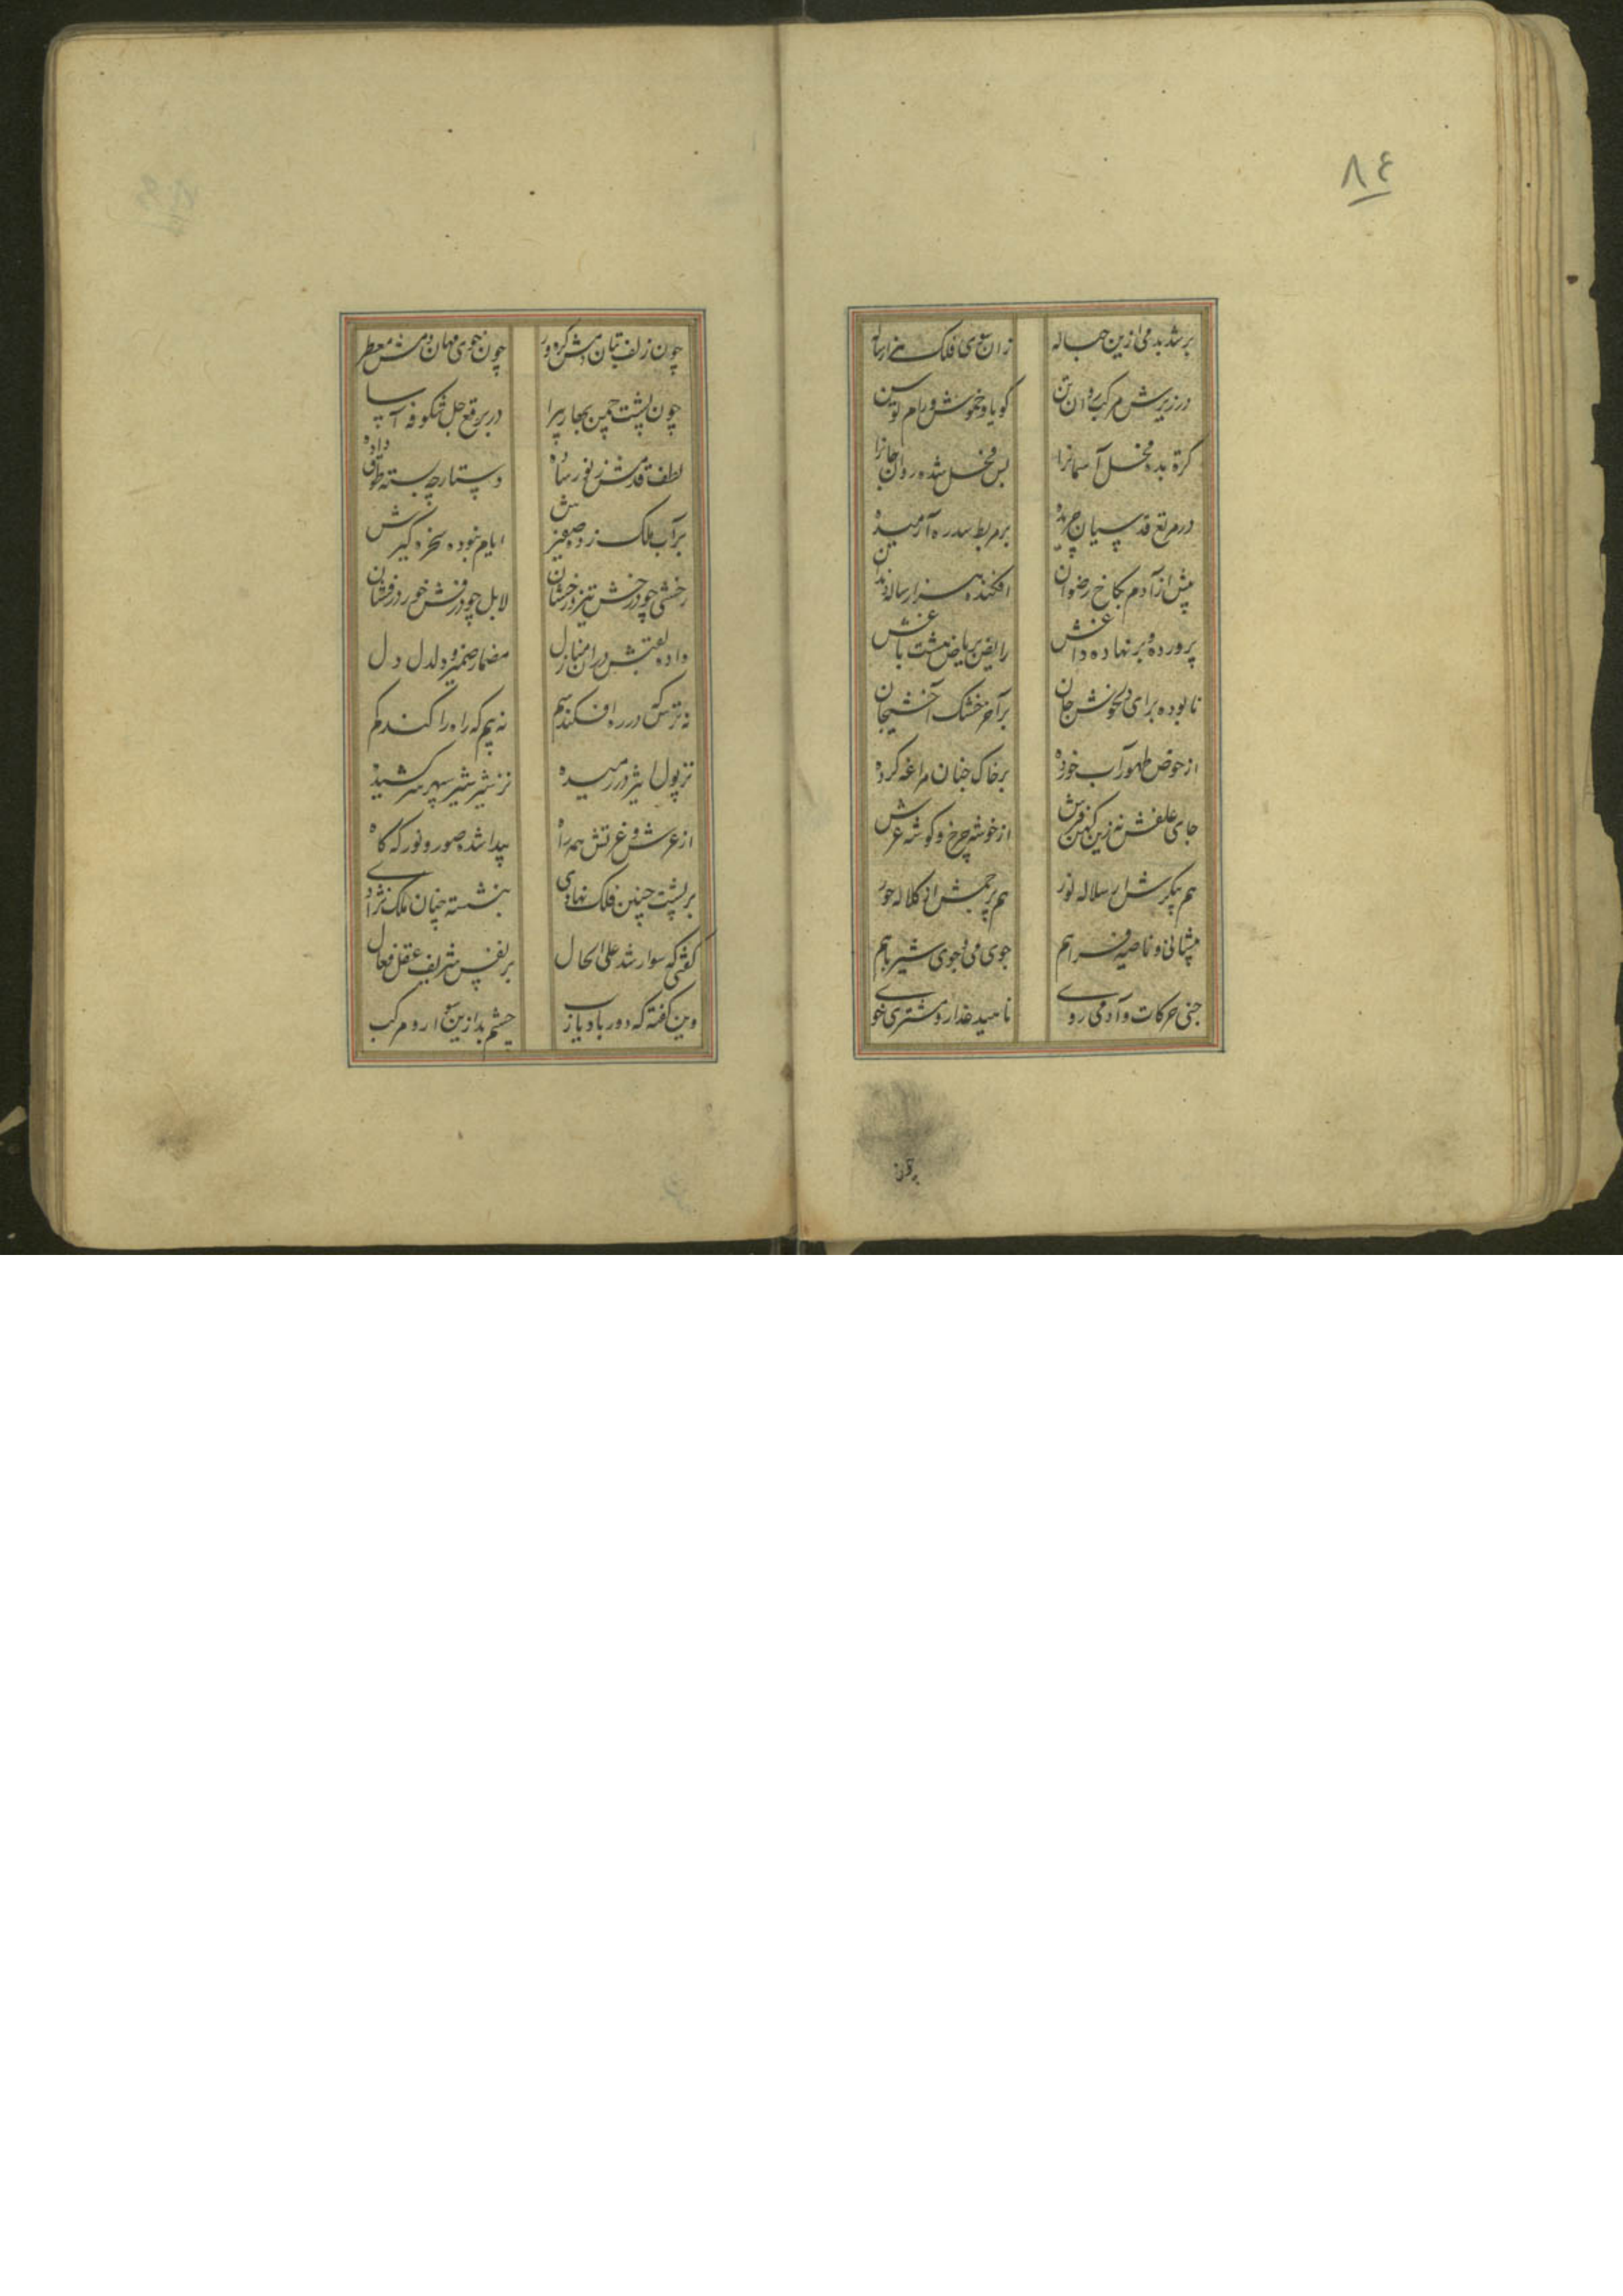 ٨٤
بر شد بدمی ازین حباله
زان سوی فلک هزار ساله
در زیرش مرکب روان تن
گویا و خموش و رام و توسن
کرة بده فحل آسمانرا
بس فحل شده روان جانرا
در مرتع قدسیان چریده
بر مربط سدره آرمیده
پیش از آدم بکاخ رضوان
افکنده هزار ساله دندان
پرورده و بر نهاده داغش
رایض بریاض هشت باغش
نابوده برای دلخوش جان
بر آخر خشک آخشیجان
از حوض طهور آب خورده
بر خاک جنان مراغه کرده
جای علفش نه زین کهن فرش
از خوشه چرخ و گوشه عرش
هم پیکرش از سلاله نور
هم پرچمش از کلاله حور
پیشانی و ناصیه فراهم
جوی می و جوی شیر باهم
جنی حرکات و آدمی روی
ناهید عذار و مشتری خوی
چون زلف بتان دمش گره ور
چون خوی مهان دمش معطر
چون پشت چمن بهار پیرا
در برقع جل شکوفه آسا
لطف قدمش ز نور ساده
دستارچه بسته طوق داده
بر آب ملک زده صفیرش
ایام نبوده سخره گیرش
رخشی چو درخش تیز درخشان
لابل چو درفش خور درفشان
داده لقبش در ان منازل
مضمار ضمیر و دلدل دل
نه ترس که در ره افکند سم
نه بیم که راه را کند گم
نز پول اثیر در رمیده
نز شیر سپهر سر کشیده
از عرش و غرتش همه راه
پیدا شده صور و نور که گاه
بر پشت چنین فلک نهادی
بنشسته چنان ملک نژادی
گفتی که سوار شد علی الحال
بر نفس شریف عقل فعال
وین گفته که دور باد یارب
چشم بد ازین سوار و مرکب